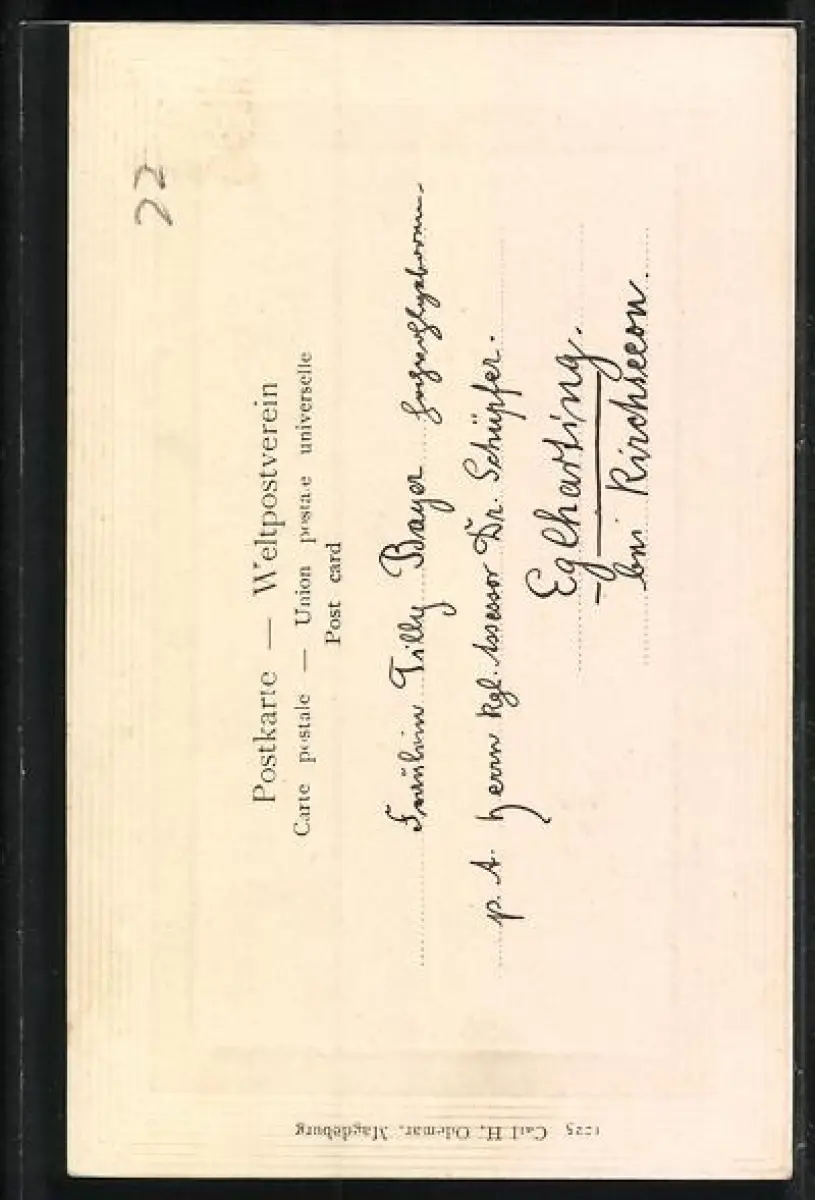 22
Postkarte — Weltpostverein
Carte postale — Union postale universelle
Post card
Fräulein Tilly Bayer Hochwohlgeboren.
p. A. Herrn Kgl. Assessor Dr. Schüpfer.
Eglharting.
bei Kirchseeon.
Carl H. Odemar, Magdeburg